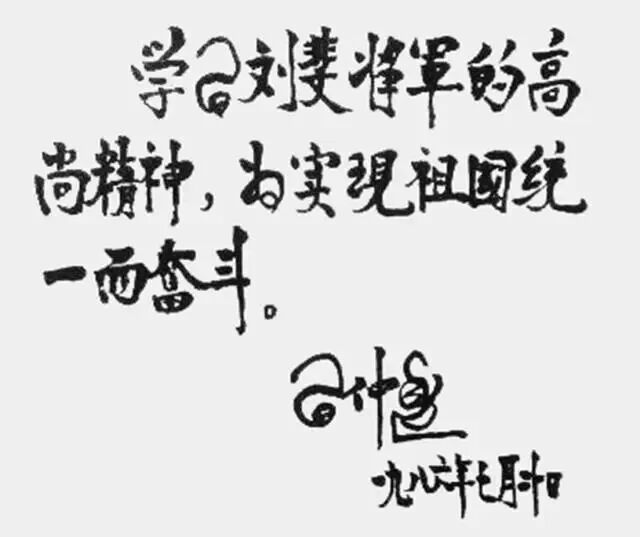 学习刘斐将军的高
尚精神，为实现祖国统
一而奋斗。
习仲勋
一九八六年七月廿日